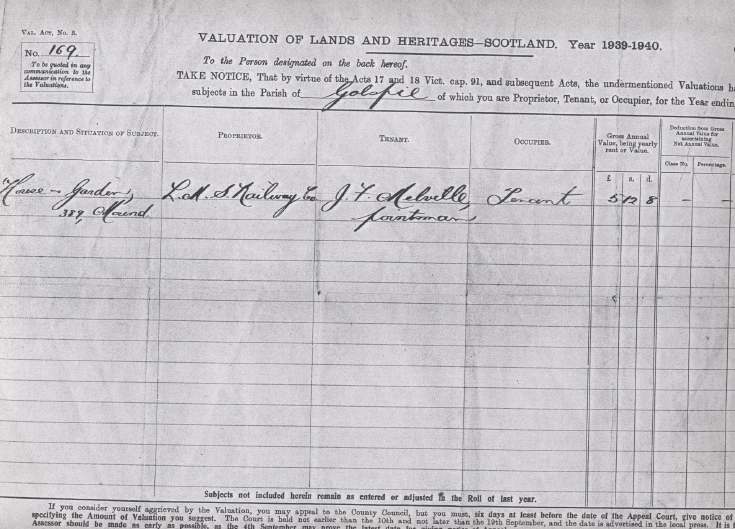 VAL. ACT, No. 3.
No. 169.
To be quoted in any
communication to the
Assessor in reference to
the Valuations.
VALUATION OF LANDS AND HERITAGES—SCOTLAND. Year 1939-1940.
To the Person designated on the back hereof.
TAKE NOTICE, That by virtue of the Acts 17 and 18 Vict. cap. 91, and subsequent Acts, the undermentioned Valuations
subjects in the Parish of Golspie of which you are Proprietor, Tenant, or Occupier, for the Year
DESCRIPTION AND SITUATION OF SUBJECT. PROPRIETOR. TENANT. OCCUPIER. Gross Annual Value, being yearly rent or Value. Deduction from Gross Annual Value for ascertaining Net Annual Value.
Class No. Percentage.
£ s. d.
House & Garden, L.M.S. Railway Co J. F. Melville, Tenant 5 12 8 – –
389, Mound. pointsman
Subjects not included herein remain as entered or adjusted in the Roll of last year.
If you consider yourself aggrieved by the Valuation, you may appeal to the County Council, but you must, six days at least before the date of the Appeal Court, give notice of
specifying the Amount of Valuation you suggest. The Court is held not earlier than the 10th and not later than the 19th September, and the date is advertised in the local press. It is
Assessor should be made as early as possible, as the 4th September may prove the latest date for